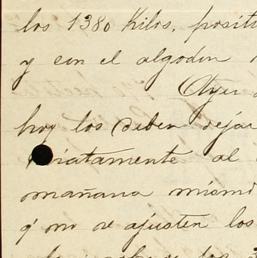 los 1380 Kilos, posit
y con el algodon
Ayer
hoy los deben dejar
diatamente al
mañana mismo
q' no se ajusten los